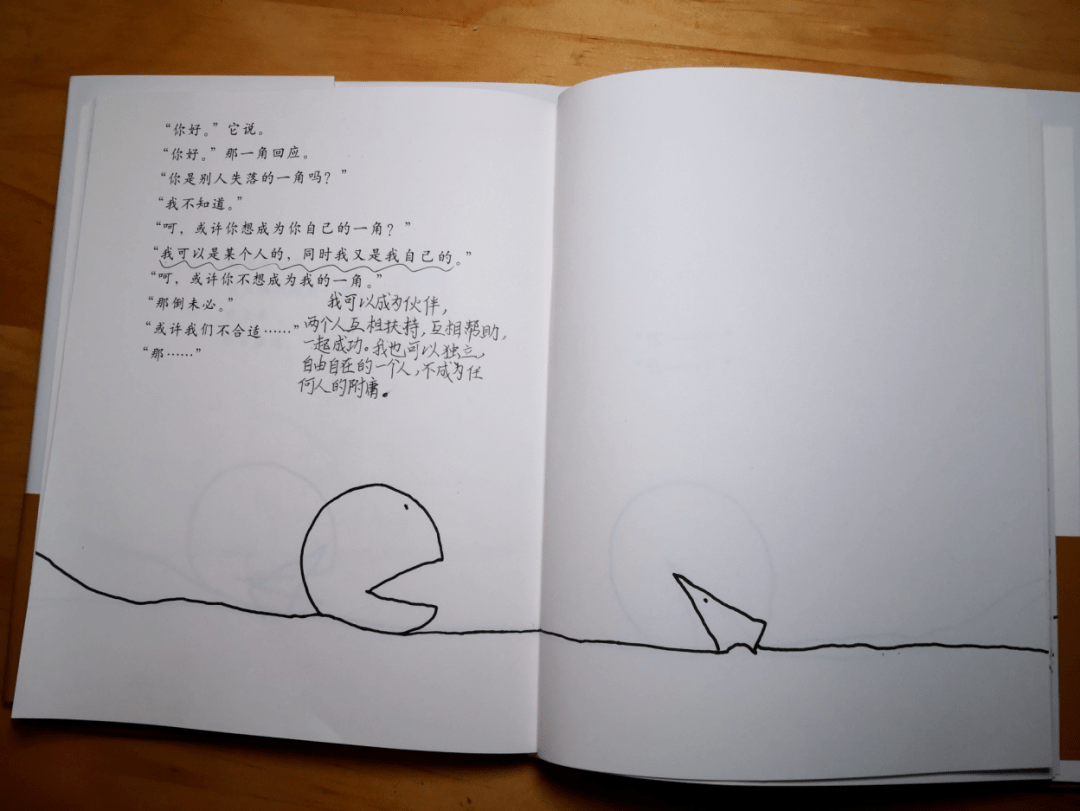 “你好。”它说。
“你好。”那一角回应。
“你是别人失落的一角吗？”
“我不知道。”
“呵，或许你想成为你自己的一角？”
“我可以是某个人的，同时我又是我自己的。”
“呵，或许你不想成为我的一角。”
“那倒未必。”
“或许我们不合适……”
“那……”
我可以成为伙伴，
两个人互相扶持，互相帮助，
一起成功。我也可以独立，
自由自在的一个人，不成为任
何人的附庸。